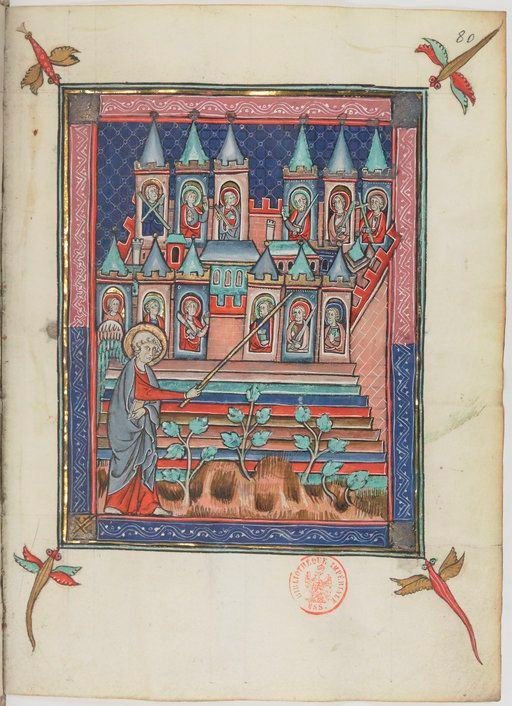 80
BIBLIOTHÈQUE IMPÉRIALE
MSS.